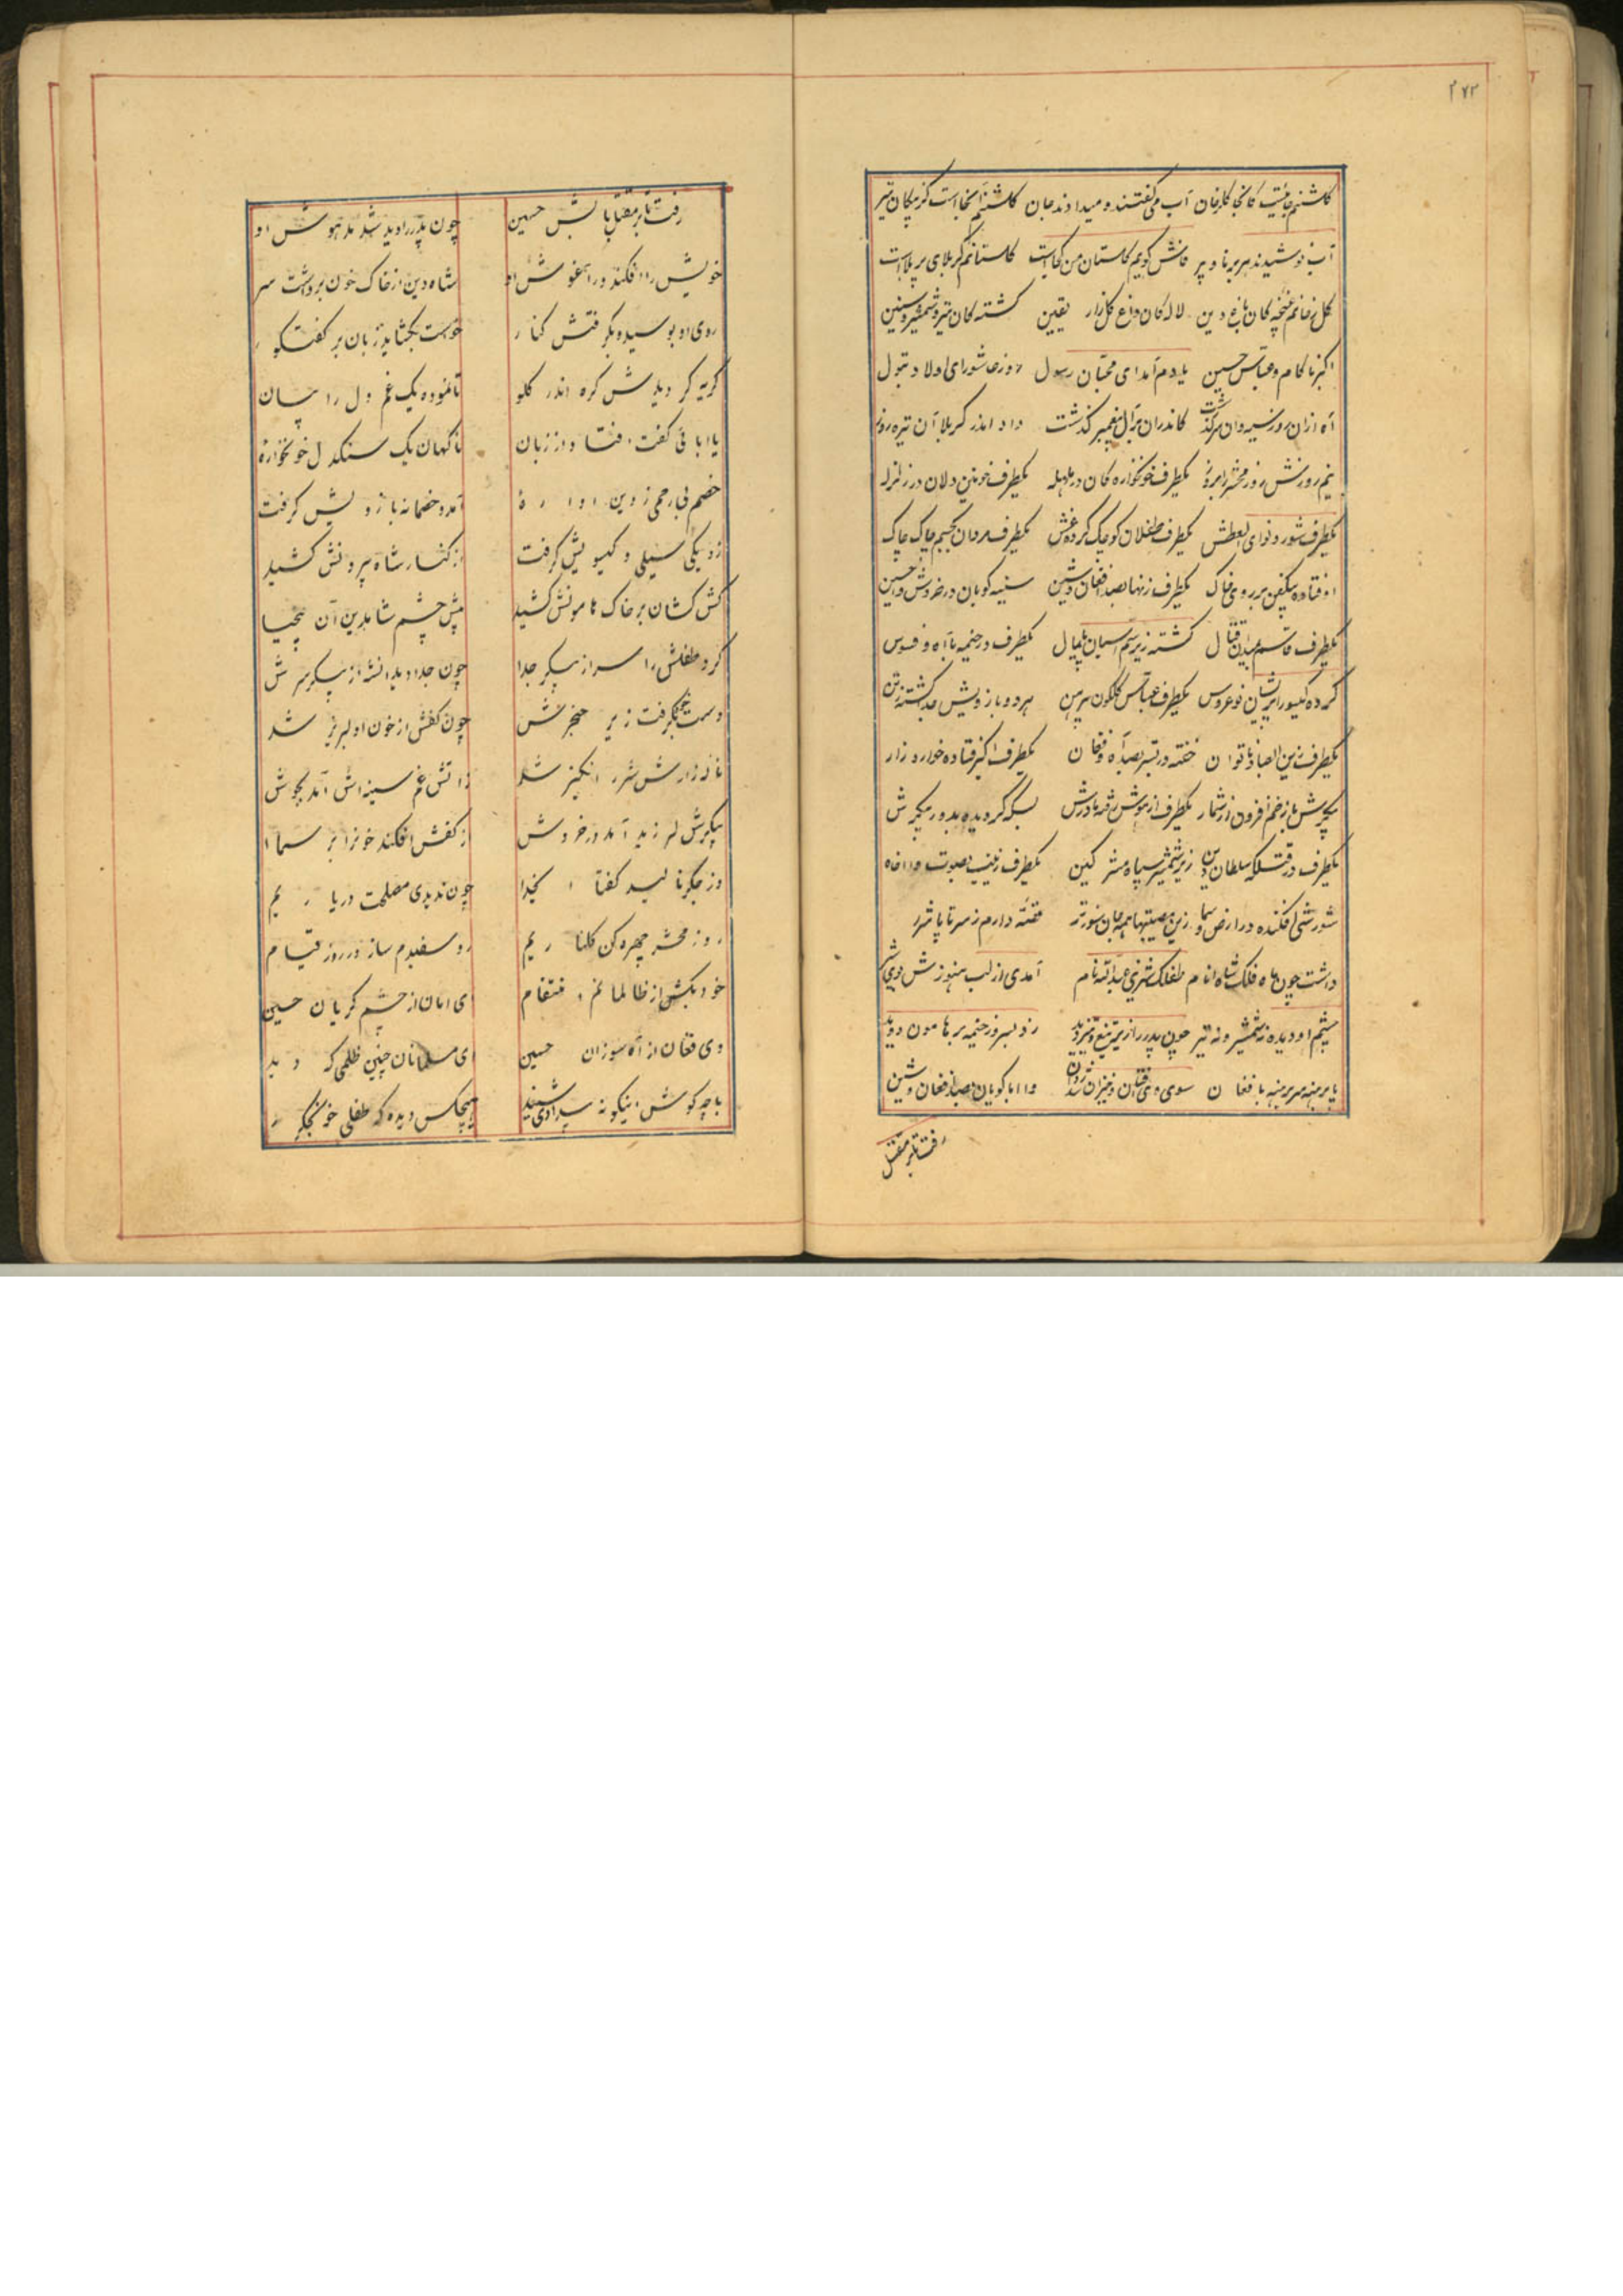 ۲۷۳
کلشنم جائیست کانجا کلرخان آب می گفتند و میدادند جان کلشنم آنجا است کز پیکان تیر
آب نوشیدند هر برنا و پیر فاش کویم کلستان من کجاست کلستانم کربلای پر بلاست
کل رخانم غنچه کان باغ دین لاله کان داغ کلزار یقین کشته کان تیر و شمشیر و سنین
اکبر ناکام و عباس حسین یادم آمد ای محبان رسول روز عاشورای اولاد بتول
آه ازان روز سیه وان سرگذشت کاندران بر آل پیغمبر گذشت داد اندر کربلا آن تیره روز
نیم روزش روز محشر را بروز یکطرف خونخواره کان در هلهله یکطرف خونین دلان در زلزله
یکطرف شور و نوای العطش یکطرف طفلان کوچک کرده غش یکطرف مردان بجسم چاک چاک
اوفتاده بیکفن بر روی خاک یکطرف زنها بصد افغان و شین سینه کوبان در خروش وا حسین
یکطرف قاسم بمیدان قتال کشته زیر سم اسبان پایمال یکطرف در خیمه با آه و فسوس
کرده کیسو را پریشان نوعروس یکطرف عباس کلکون پیرهن هر دو بازویش جدا کشته ز تن
یکطرف زین العباد ناتوان خفته در بستر بصد آه و فغان یکطرف اکبر فتاده خوار و زار
پیکرش با زخم افزون از شمار یکطرف از هوش رفته مادرش بسکه کردیده بدور پیکرش
یکطرف در قتلکه سلطان دین زیر شمشیر سپاه مشرکین یکطرف زینب بصوت وا اخاه
شورشی افکنده در ارض و سما زین مصیبتها همه جان سوزتر قصه دارم ز سر تا پا شرر
داشت چون ماه فلک شاه انام طفلک شیرین عبدالله نام آمدی از لب هنوزش بوی شیر
چشم او دیده نه شمشیر و نه تیر چون پدر را زیر تیغ و تیر دید زد بسر وز خیمه بر هامون دوید
پا برهنه سر برهنه با فغان سوی وی افتان و خیزان شد روان وا ابا کویان بصد افغان و شین
رفت تا بر مقتل
رفت تا بر مقتل باب حسین چون پدر را دید شد مدهوش او
خویش را افکند در آغوش او شاه دین از خاک خون برداشت سر
روی او بوسید و بکرفتش کنار خواست بکشاید زبان بر کفتکو
کریه کردیدش کره اندر کلو تا نموده یک غم دل را بیان
یا ابا فی گفت افتاد از زبان ناکهان یک سنکدل خونخواره
خصم بی رحمی ز دین اواره آمد و خصمانه بازویش کرفت
زد یکی سیلی و کیسویش کرفت از کنار شاه بیرونش کشید
کش کشان بر خاک هامونش کشید پیش چشم شاهدین آن بیحیا
کرد طفلش را سر از پیکر جدا چون جدا دید انشه از پیکر سرش
دست بگرفت زیر حنجرش چون کفش از خون او لبریز شد
ناله زارش شرر انکیز شد زاتش غم سینه اش آمد بجوش
پیکرش لرزید آمد در خروش از کفش افکند خونرا بر سما
وز جکر نالید کفتا ای خدا چون ندیدی مصلحت دریاریم
روز محشر چهره کن کلناریم رو سفیدم ساز در روز قیام
خود بکش از ظالمانم انتقام ای امان از چشم کریان حسین
وی فغان از آه سوزان حسین ای مسلمانان چنین ظلمی که دید
با چه کوش اینکونه بیدادی شنید هیچکس دیده که طفلی خونجگر